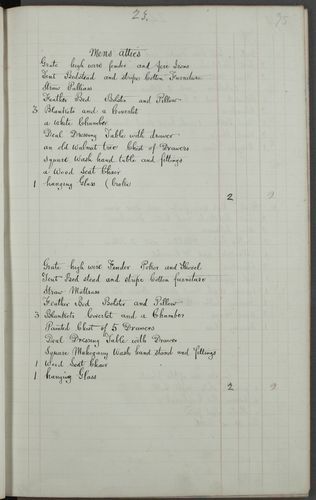 23.
95
Mens attics
Grate high wire fender and fire Irons
Tent Bedstead and stripe Cotton Furniture
Straw Palliass
Feather Bed Bolster and Pillow
3 Blankets and a Coverlet
a White Chamber
Deal Dressing Table with drawer
an old Walnut tree Chest of Drawers
Square Wash hand table and fittings
a Wood Seat Chair
1 hanging Glass
2 2
Grate high wire Fender Poker and Shovel
Tent Bed stead and stripe Cotton furniture
Straw Mattrass
Feather Bed Bolster and Pillow
3 Blankets Coverlet and a Chamber
Painted Chest of 5 Drawers
Deal Dressing Table with Drawer
Square Mahogany Wash hand stand and fittings
1 Wood Seat Chair
1 hanging Glass
2 2